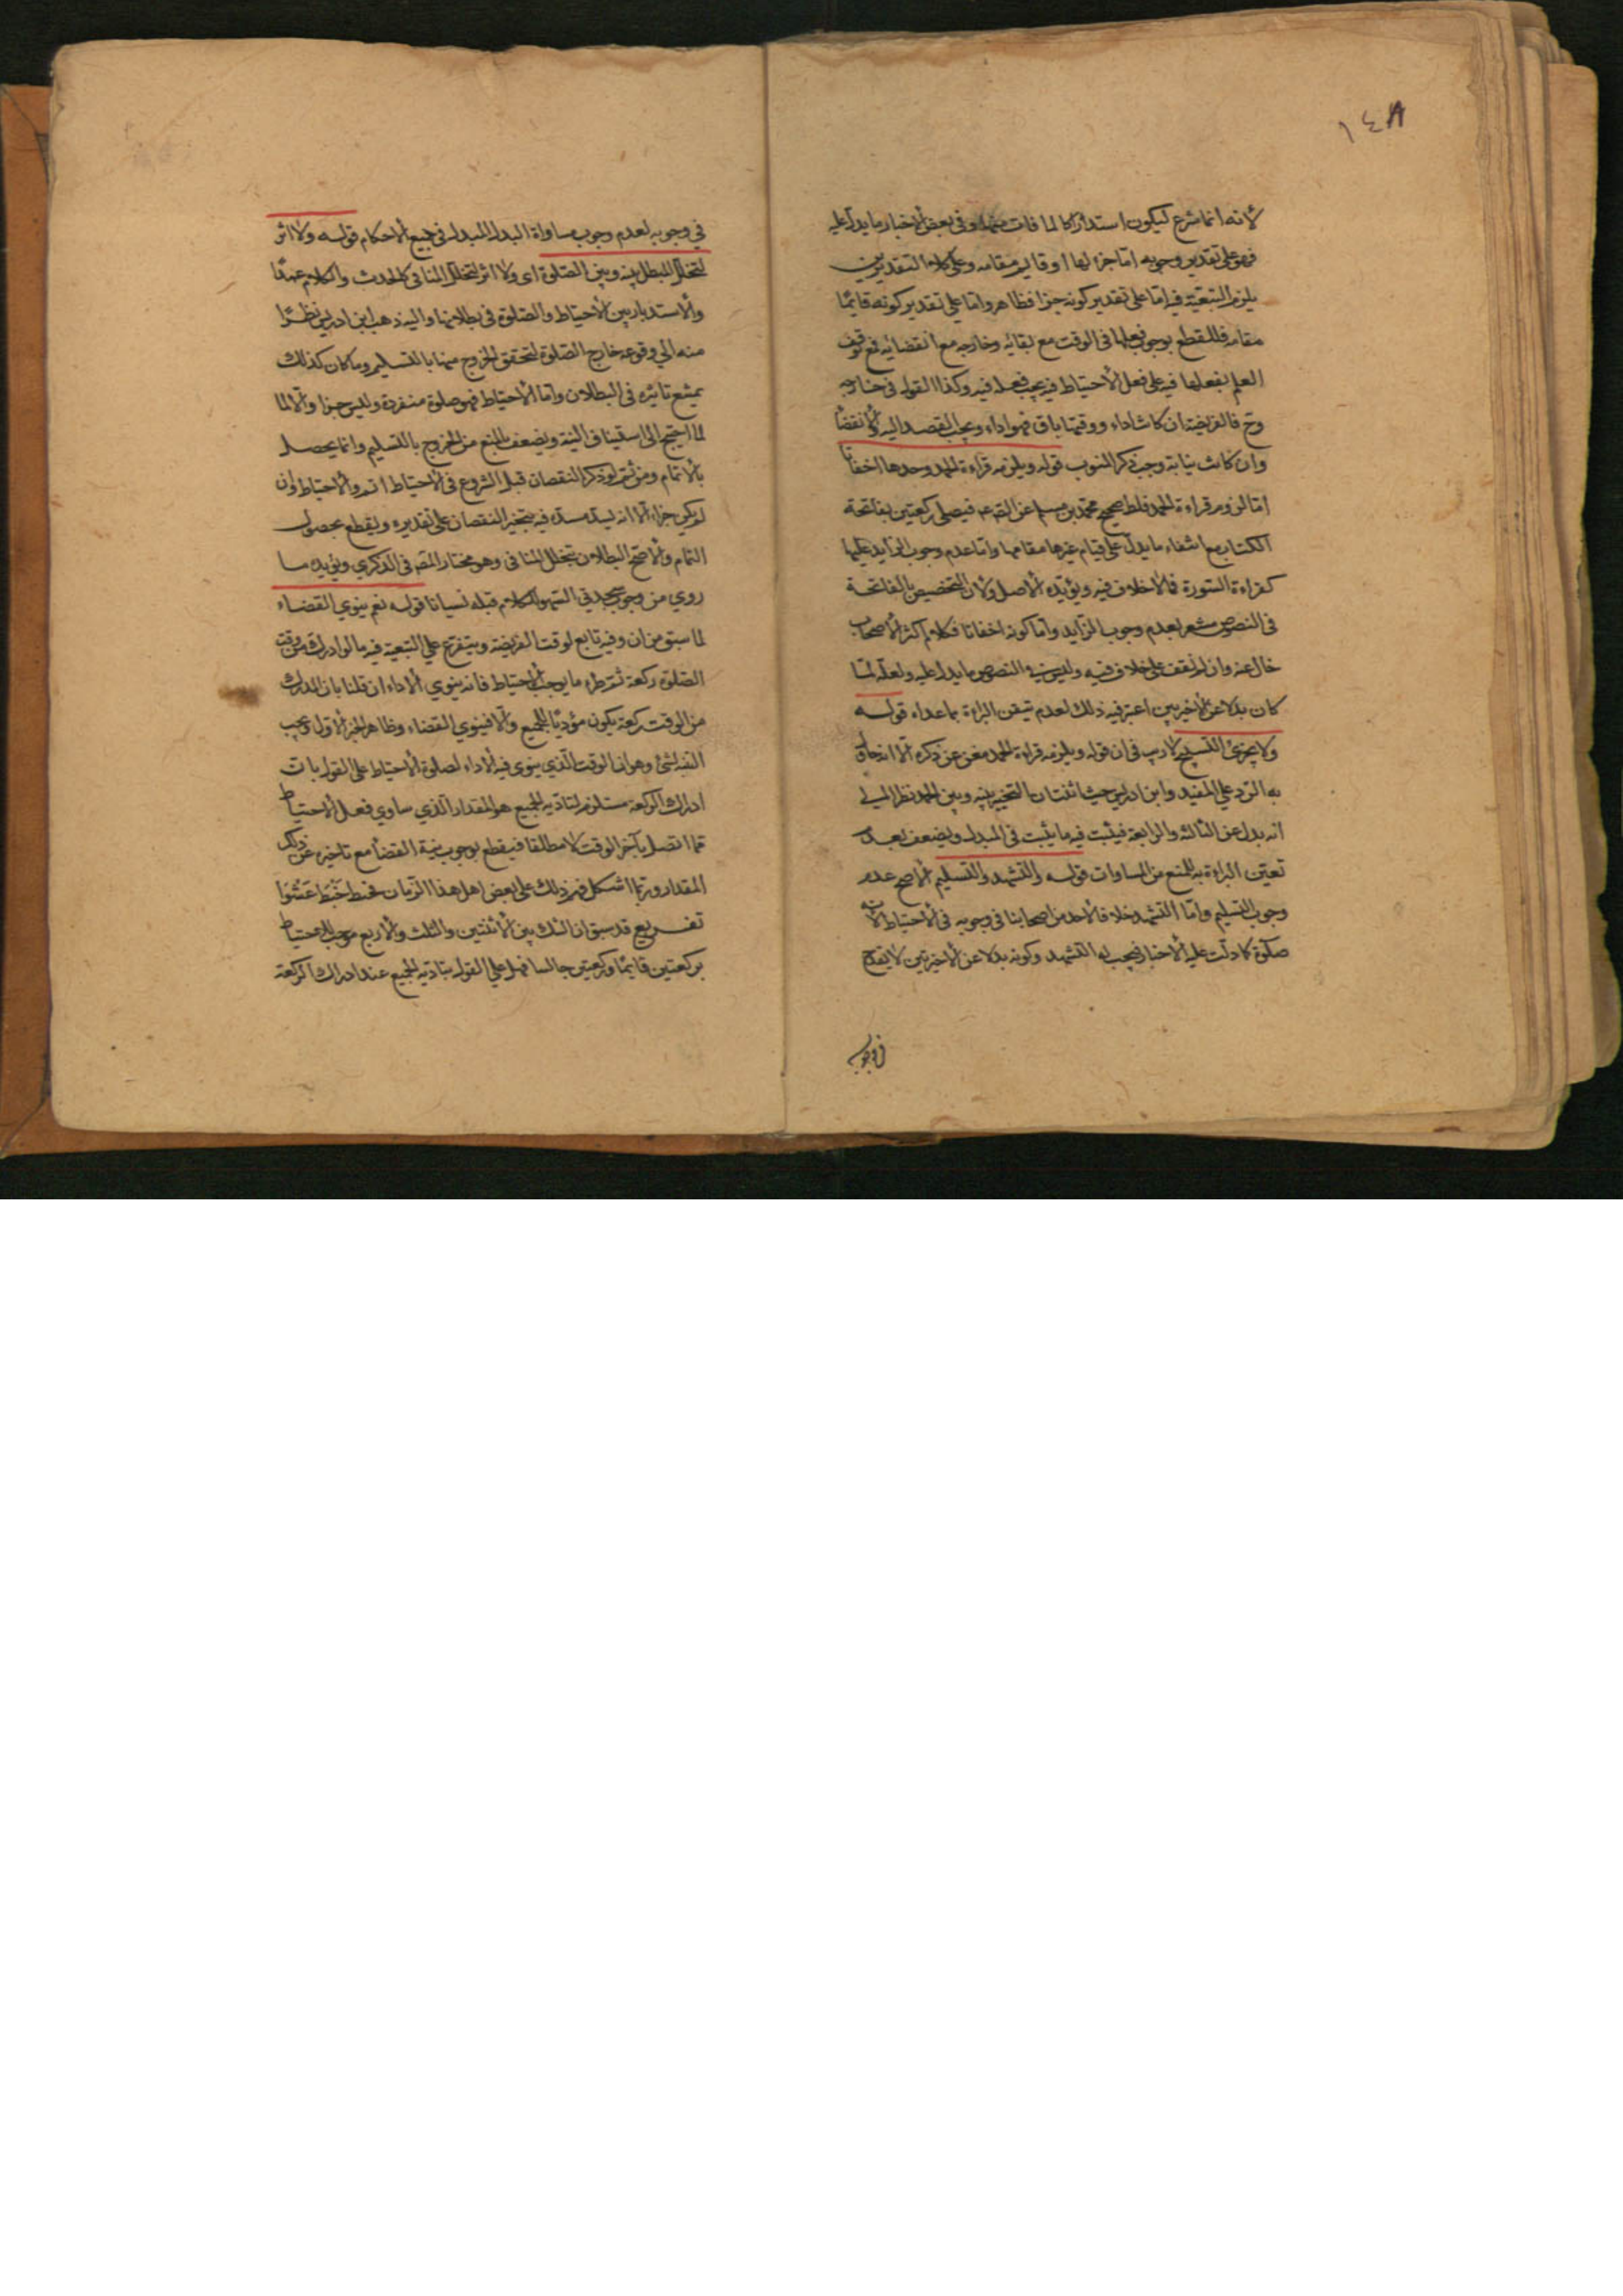 ١٤٨
لانه انما شرع ليكون استدراكا لما فات منها وفى بعض الاخبار ما يدل عليه
فهو على تقدير وجوبه اما جزء لها او قايم مقامه وعلى كلا التقديرين
يلزم التبعية فيه اما على تقدير كونه جزا فظاهر واما على تقدير كونه قائما
مقامه فللقطع بوجوب فعلها فى الوقت مع بقائه وخارجه مع انقضائه فمع توقف
العلم بفعلها فيه على فعل الاحتياط فيه يجب فعله فيه وكذا القول فى خارجه
وح فالفريضة ان كانت اداء ووقتها باق فهو اداء ويجب القصد اليه
وان كانت نيابة وجب ذكر المنوب قوله ويلزمه قراءة الحمد وحدها اخفاتا
اما لزوم قراءة الحمد فلما صح محمد بن مسلم عن فيصلى ركعتين بفاتحة
الكتاب مع انتفاء ما يدل على قيام غيرها مقامها واما عدم وجوب الزايد عليها
كقراءة السورة فلا خلاف فيه ويؤيده الاصل ولان التخصيص بالفاتحة
فى النصوص مشعر بعدم وجوب الزايد واما كونه اخفاتا فكلام اكثر الاصحاب
خال عنه وان لم نقف على خلاف فيه وليس فى النصوص ما يدل عليه ولعله لما
كان بدلا عن الاخيرتين اعتبر فيه ذلك لعدم تيقن البراءة بما عداه قوله
ولا يجزئ التسبيح لا ريب فى ان قوله ويلزمه قراءة الحمد مغن عن ذكره الا انه
به الرد على المفيد وابن ادريس حيث اثبتا التخيير بينه وبين الحمد نظرا الى
انه بدل عن الثالثة والرابعة فيثبت فيه ما يثبت فى المبدل ويضعف بعدم
تعين البراءة به للمنع من المساوات قوله والتشهد والتسليم الاصح عدم
وجوب التسليم واما التشهد فلا خلاف لاحد من اصحابنا فى وجوبه فى الاحتياط لانه
صلوة كما دلت عليه الاخبار فيجب له التشهد وكونه بدلا عن الاخيرتين لا يقدح
فى وجوبه
فى وجوبه لعدم وجوب مساواة البدل للمبدل فى جميع الاحكام قوله ولا اثر
لتخلل المبطل بينه وبين الصلوة اى ولا اثر لتخلل المنافى كالحدث والكلام عمدا
والاستدبار بين الاحتياط والصلوة فى بطلانها واليه ذهب ابن ادريس نظرا
منه الى وقوعه خارج الصلوة لتحقق الخروج منها بالتسليم وما كان كذلك
يمتنع تاثيره فى البطلان واما الاحتياط فهو صلوة منفردة وليس جزا والا لما
لما احتيج الى استيناف النية ويضعف بالمنع من الخروج بالتسليم وانما يحصل
بالاتمام ومن ثم لو ذكر النقصان قبل الشروع فى الاحتياط اتم والاحتياط وان
لم يكن جزءا الا انه ليسد مسده فيه ينجبر النقصان على تقديره ويقطع بحصول
التمام والاصح البطلان بتخلل المنافى وهو مختار المصـ فى الذكري ويؤيده ما
روي من وجوب سجدتي السهو للكلام قبله نسيانا قوله نعم ينوي القضاء
لما سبق من ان وفيه تابع لوقت الفريضة ويتفرع على التبعية فيه ما لو ادرك من وقت
الصلوة ركعة ثم طراء ما يوجب الاحتياط فانه ينوي الاداء ان قلنا بان المدرك
من الوقت ركعة يكون مؤديا للجميع والا فينوي القضاء وظاهر الخبر الاول
لشئ وهو ان الوقت الذي ينوى فيه الاداء لصلوة الاحتياط على القول بان
ادراك الركعة مستلزم لتادية الجميع هو المقدار الذي ساوي فعل الاحتياط
مما اتصل بآخر الوقت لا مطلقا فيقطع بوجوب نية القضا مع تاخيره عن ذلك
المقدار وربما اشكل فهم ذلك على بعض اهل هذا الزمان فخبط خبط عشوا
تفريع قد سبق ان الشك بين الاثنتين والثلث والاربع موجب للاحتياط
بركعتين قائما وركعتين جالسا فهل على القول بتادية الجميع عند ادراك الركعة